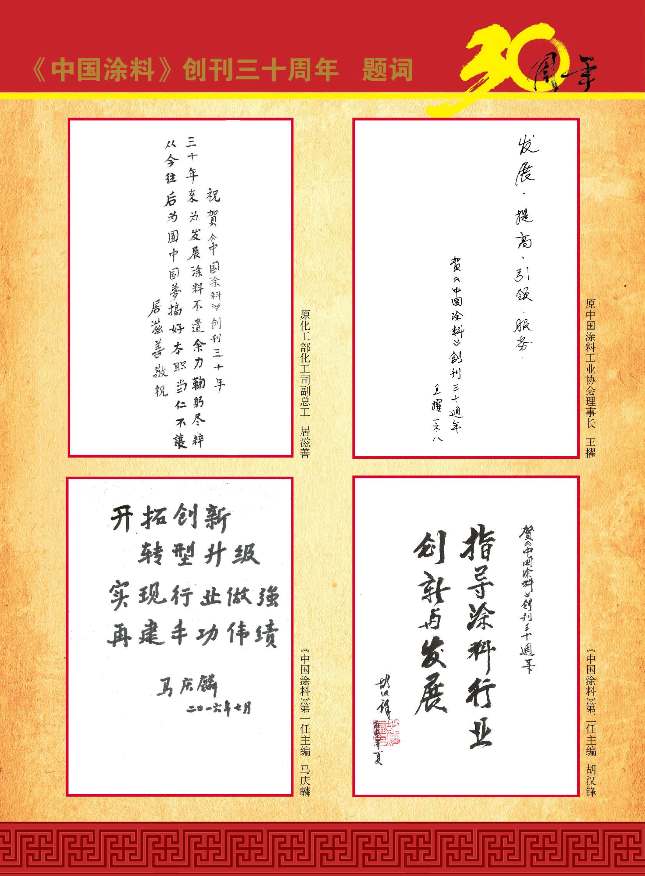 《中国涂料》创刊三十周年 题词
30周年
祝贺《中国涂料》创刊三十年
三十年来为发展涂料不遗余力鞠躬尽粹
从今往后为圆中国梦搞好本职当仁不让
居滋善敬祝
原化工部化工司副总工 居滋善
发展·提高·引领·服务·
贺《中国涂料》創刊三十週年
王耀
原中国涂料工业协会理事长 王耀
开拓创新
转型升级
实现行业做强
再建丰功伟绩
马庆麟
二〇一六年七月
《中国涂料》第一任主编 马庆麟
贺《中国涂料》創刊三十週年
指导涂料行业
创新与发展
《中国涂料》第二任主编 胡汉锋